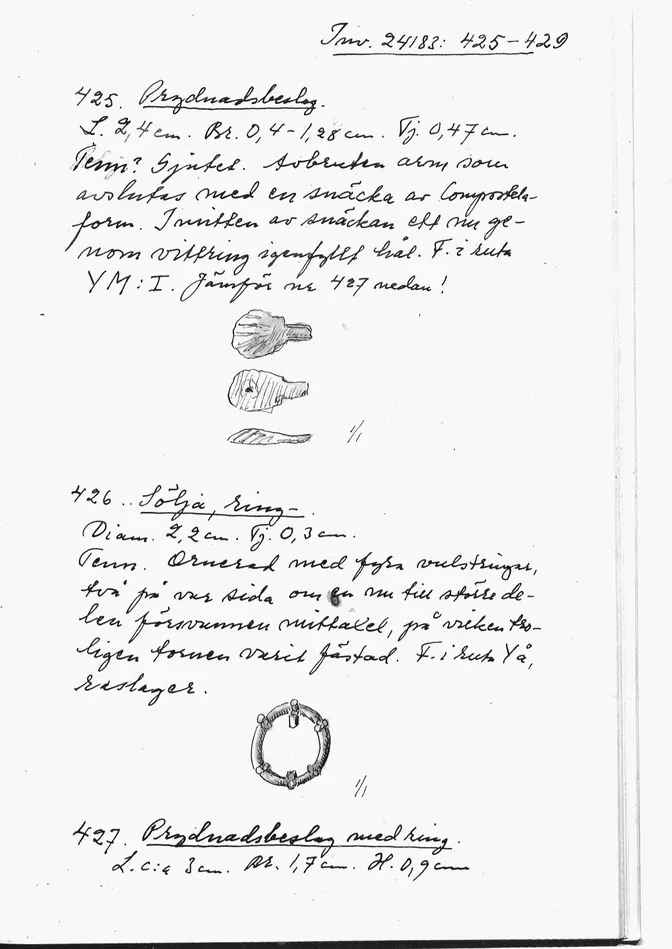 Inv. 24183: 425-429
425. Prydnadsbeslag.
L. 2,4 cm. Br. 0,4-1,28 cm. Tj. 0,47 cm.
Tenn? Gjutet. Avbruten arm som
avslutas med en snäcka av Compostela-
form. I mitten av snäckan ett nu ge-
nom vittring igenfyllt hål. F. i ruta
YM: I. Jämför nr 427 nedan!
1/1
426. Sölja, ring-.
Diam. 2,2 cm. Tj. 0,3 cm.
Tenn. Ornerad med fyra vulstringar,
två på var sida om en nu till större de-
len försvunnen mittaxel, på vilken tro-
ligen tornen varit fästad. F. i ruta YÅ,
raslager.
1/1
427. Prydnadsbeslag med ring.
L. c:a 3 cm. Br. 1,7 cm. H. 0,9 cm